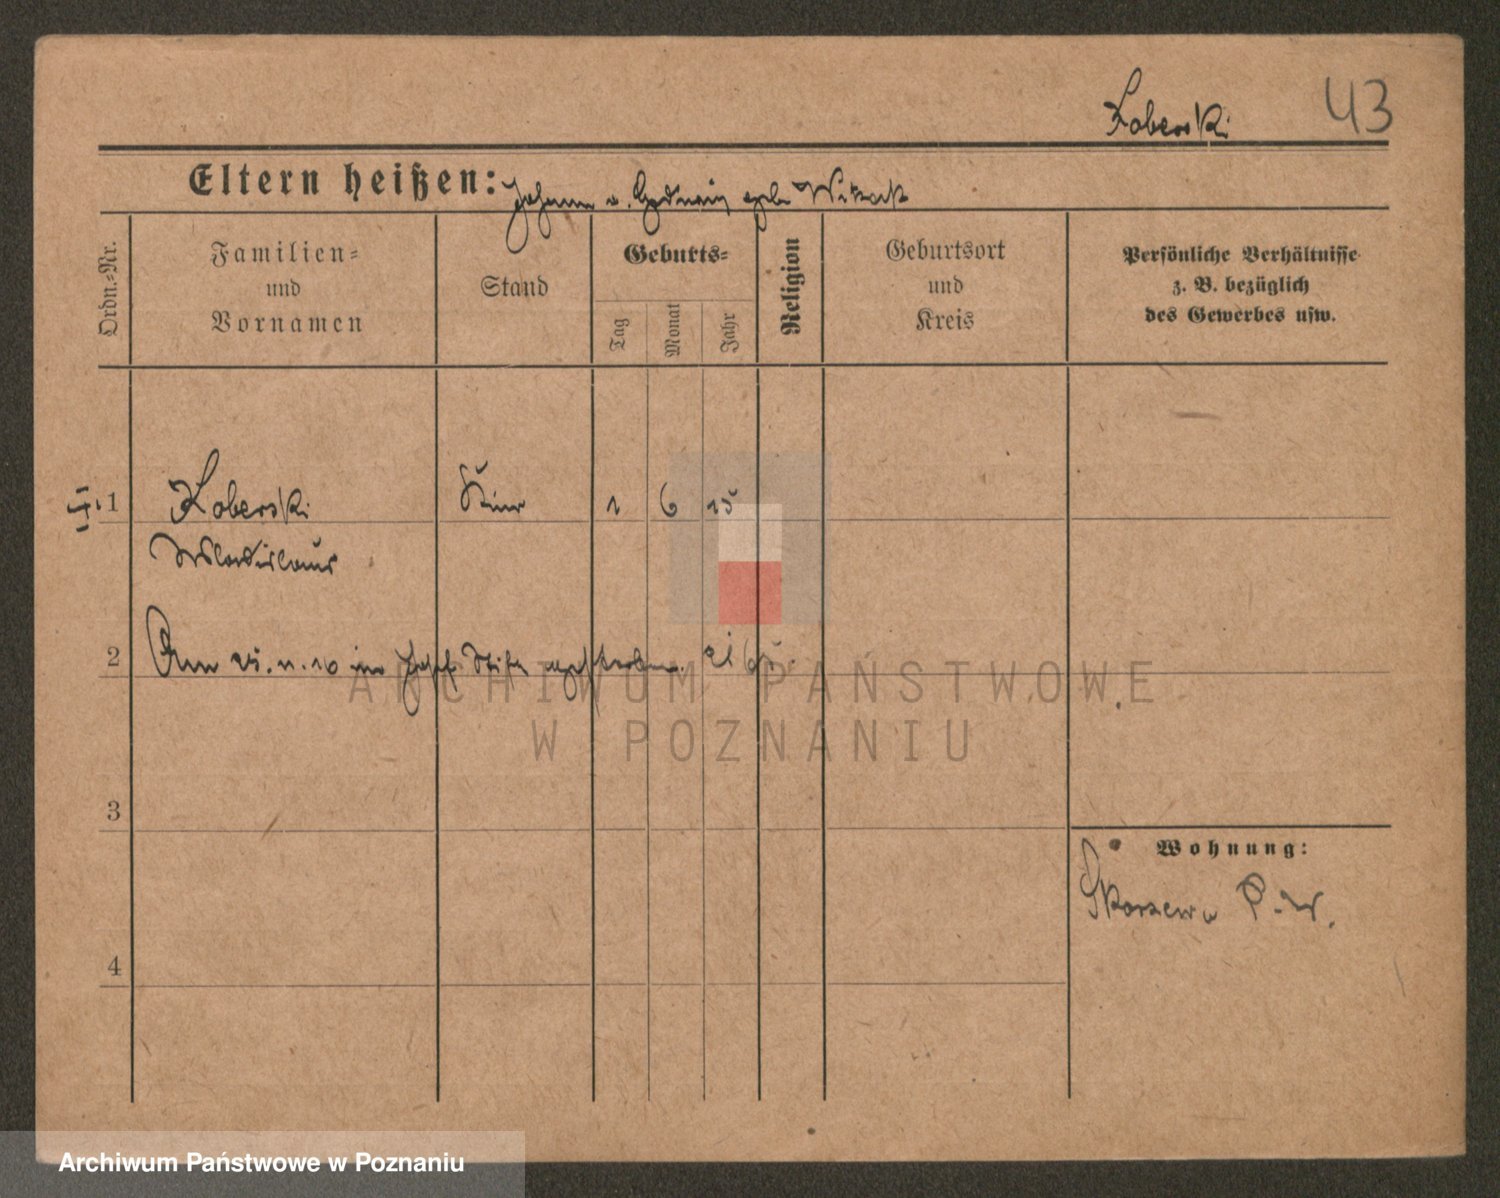 Koberski 43
Eltern heißen: Johann u. Hedwig geb. Witzak
Ordn.-Nr.
Familien-
und
Vornamen
Stand
Geburts-
Tag
Monat
Jahr
Religion
Geburtsort
und
Kreis
Persönliche Verhältnisse
z. B. bezüglich
des Gewerbes usw.
1 Koberski Kind 1 6 15
Wladislaus
2 Am in Josef Stift gestorben.
3
Wohnung:
P.-W.
4
ARCHIWUM PAŃSTWOWE
W POZNANIU
Archiwum Państwowe w Poznaniu